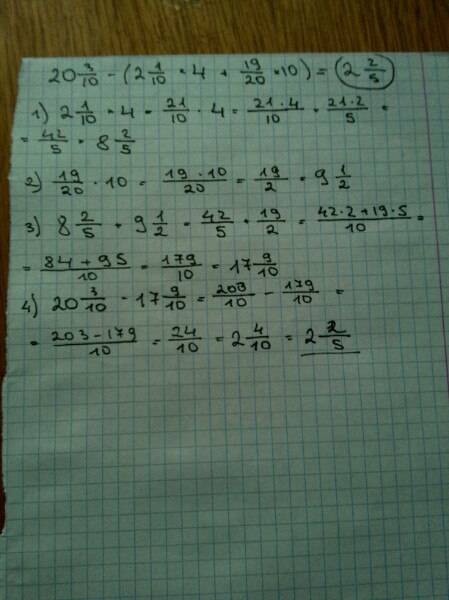 20 3/10 - (2 1/10 · 4 + 19/20 · 10) = 2 2/5
1) 2 1/10 · 4 = 21/10 · 4 = 21·4/10 = 21·2/5 =
= 42/5 = 8 2/5
2) 19/20 · 10 = 19·10/20 = 19/2 = 9 1/2
3) 8 2/5 + 9 1/2 = 42/5 + 19/2 = 42·2+19·5/10 =
= 84+95/10 = 179/10 = 17 9/10
4) 20 3/10 - 17 9/10 = 203/10 - 179/10 =
= 203-179/10 = 24/10 = 2 4/10 = 2 2/5